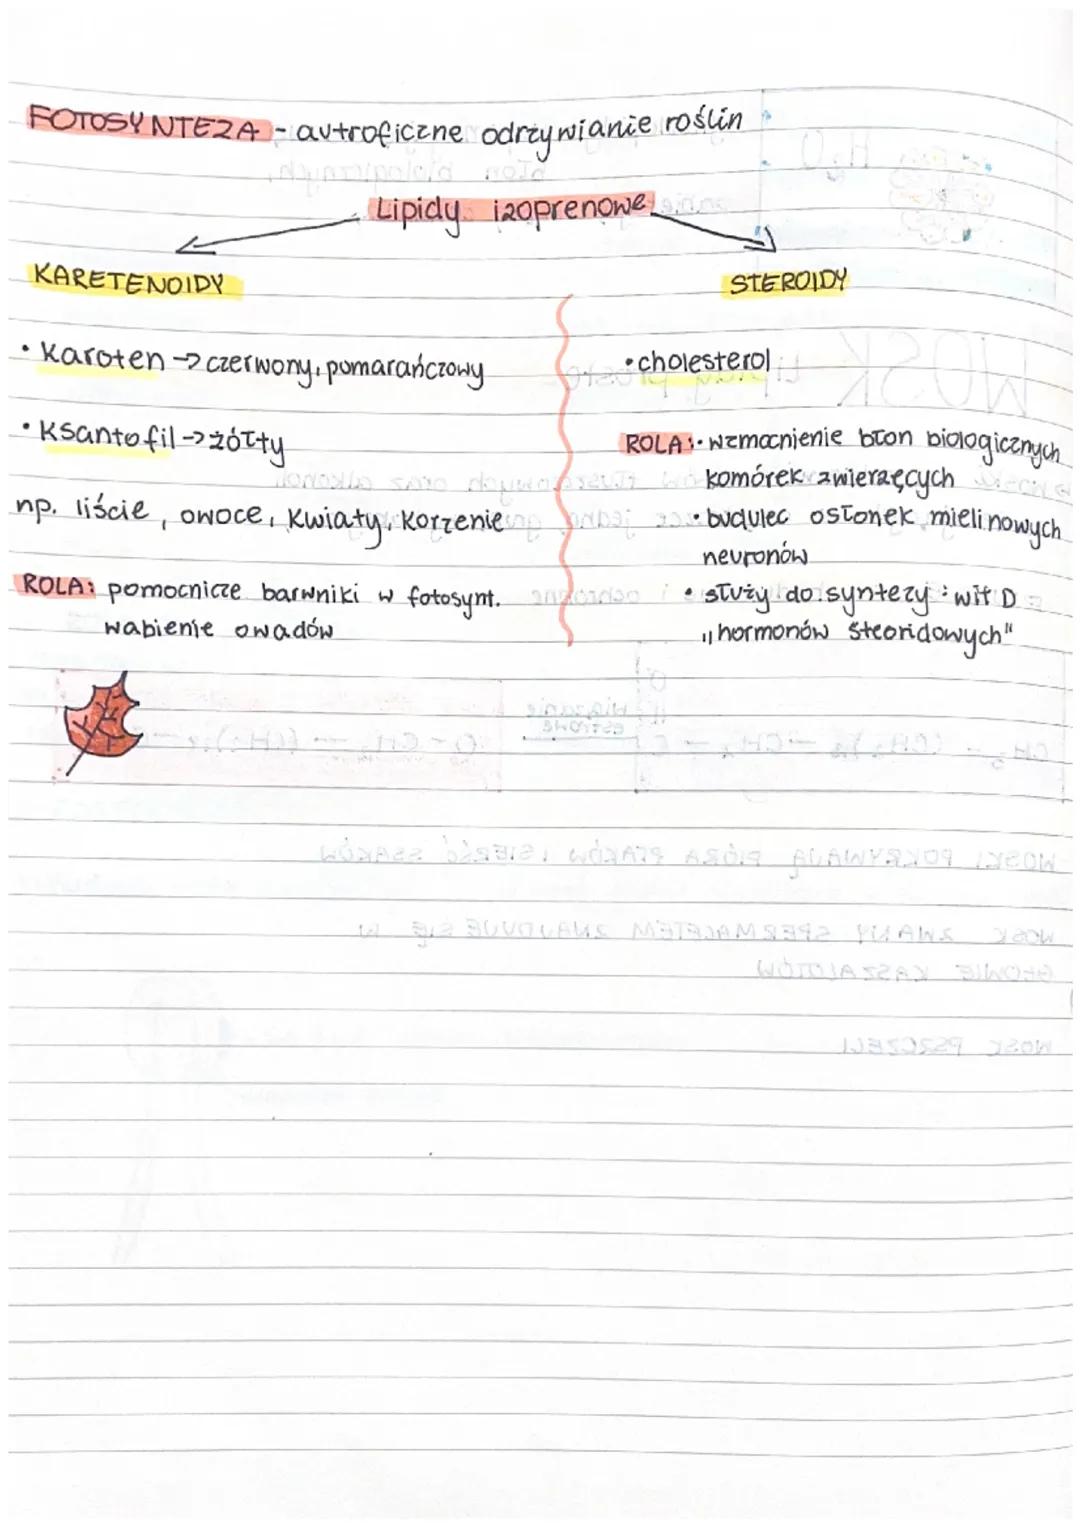 FOTOSYNTEZA - autroficzne odrzywianie roślin
Lipidy izoprenowe
KARETENOIDY
STEROIDY
• Karoten → czerwony, pomarańczowy
• Ksantofil → żółty
np. liście, owoce, kwiaty, korzenie
ROLA: pomocnicze barwniki w fotosynt.
wabienie owadów
• cholesterol
ROLA: • wzmocnienie błon biologicznych
komórek zwierzęcych
• budulec osłonek mielinowych
neuronów
• służy do syntezy: wit D
„hormonów steoridowych"